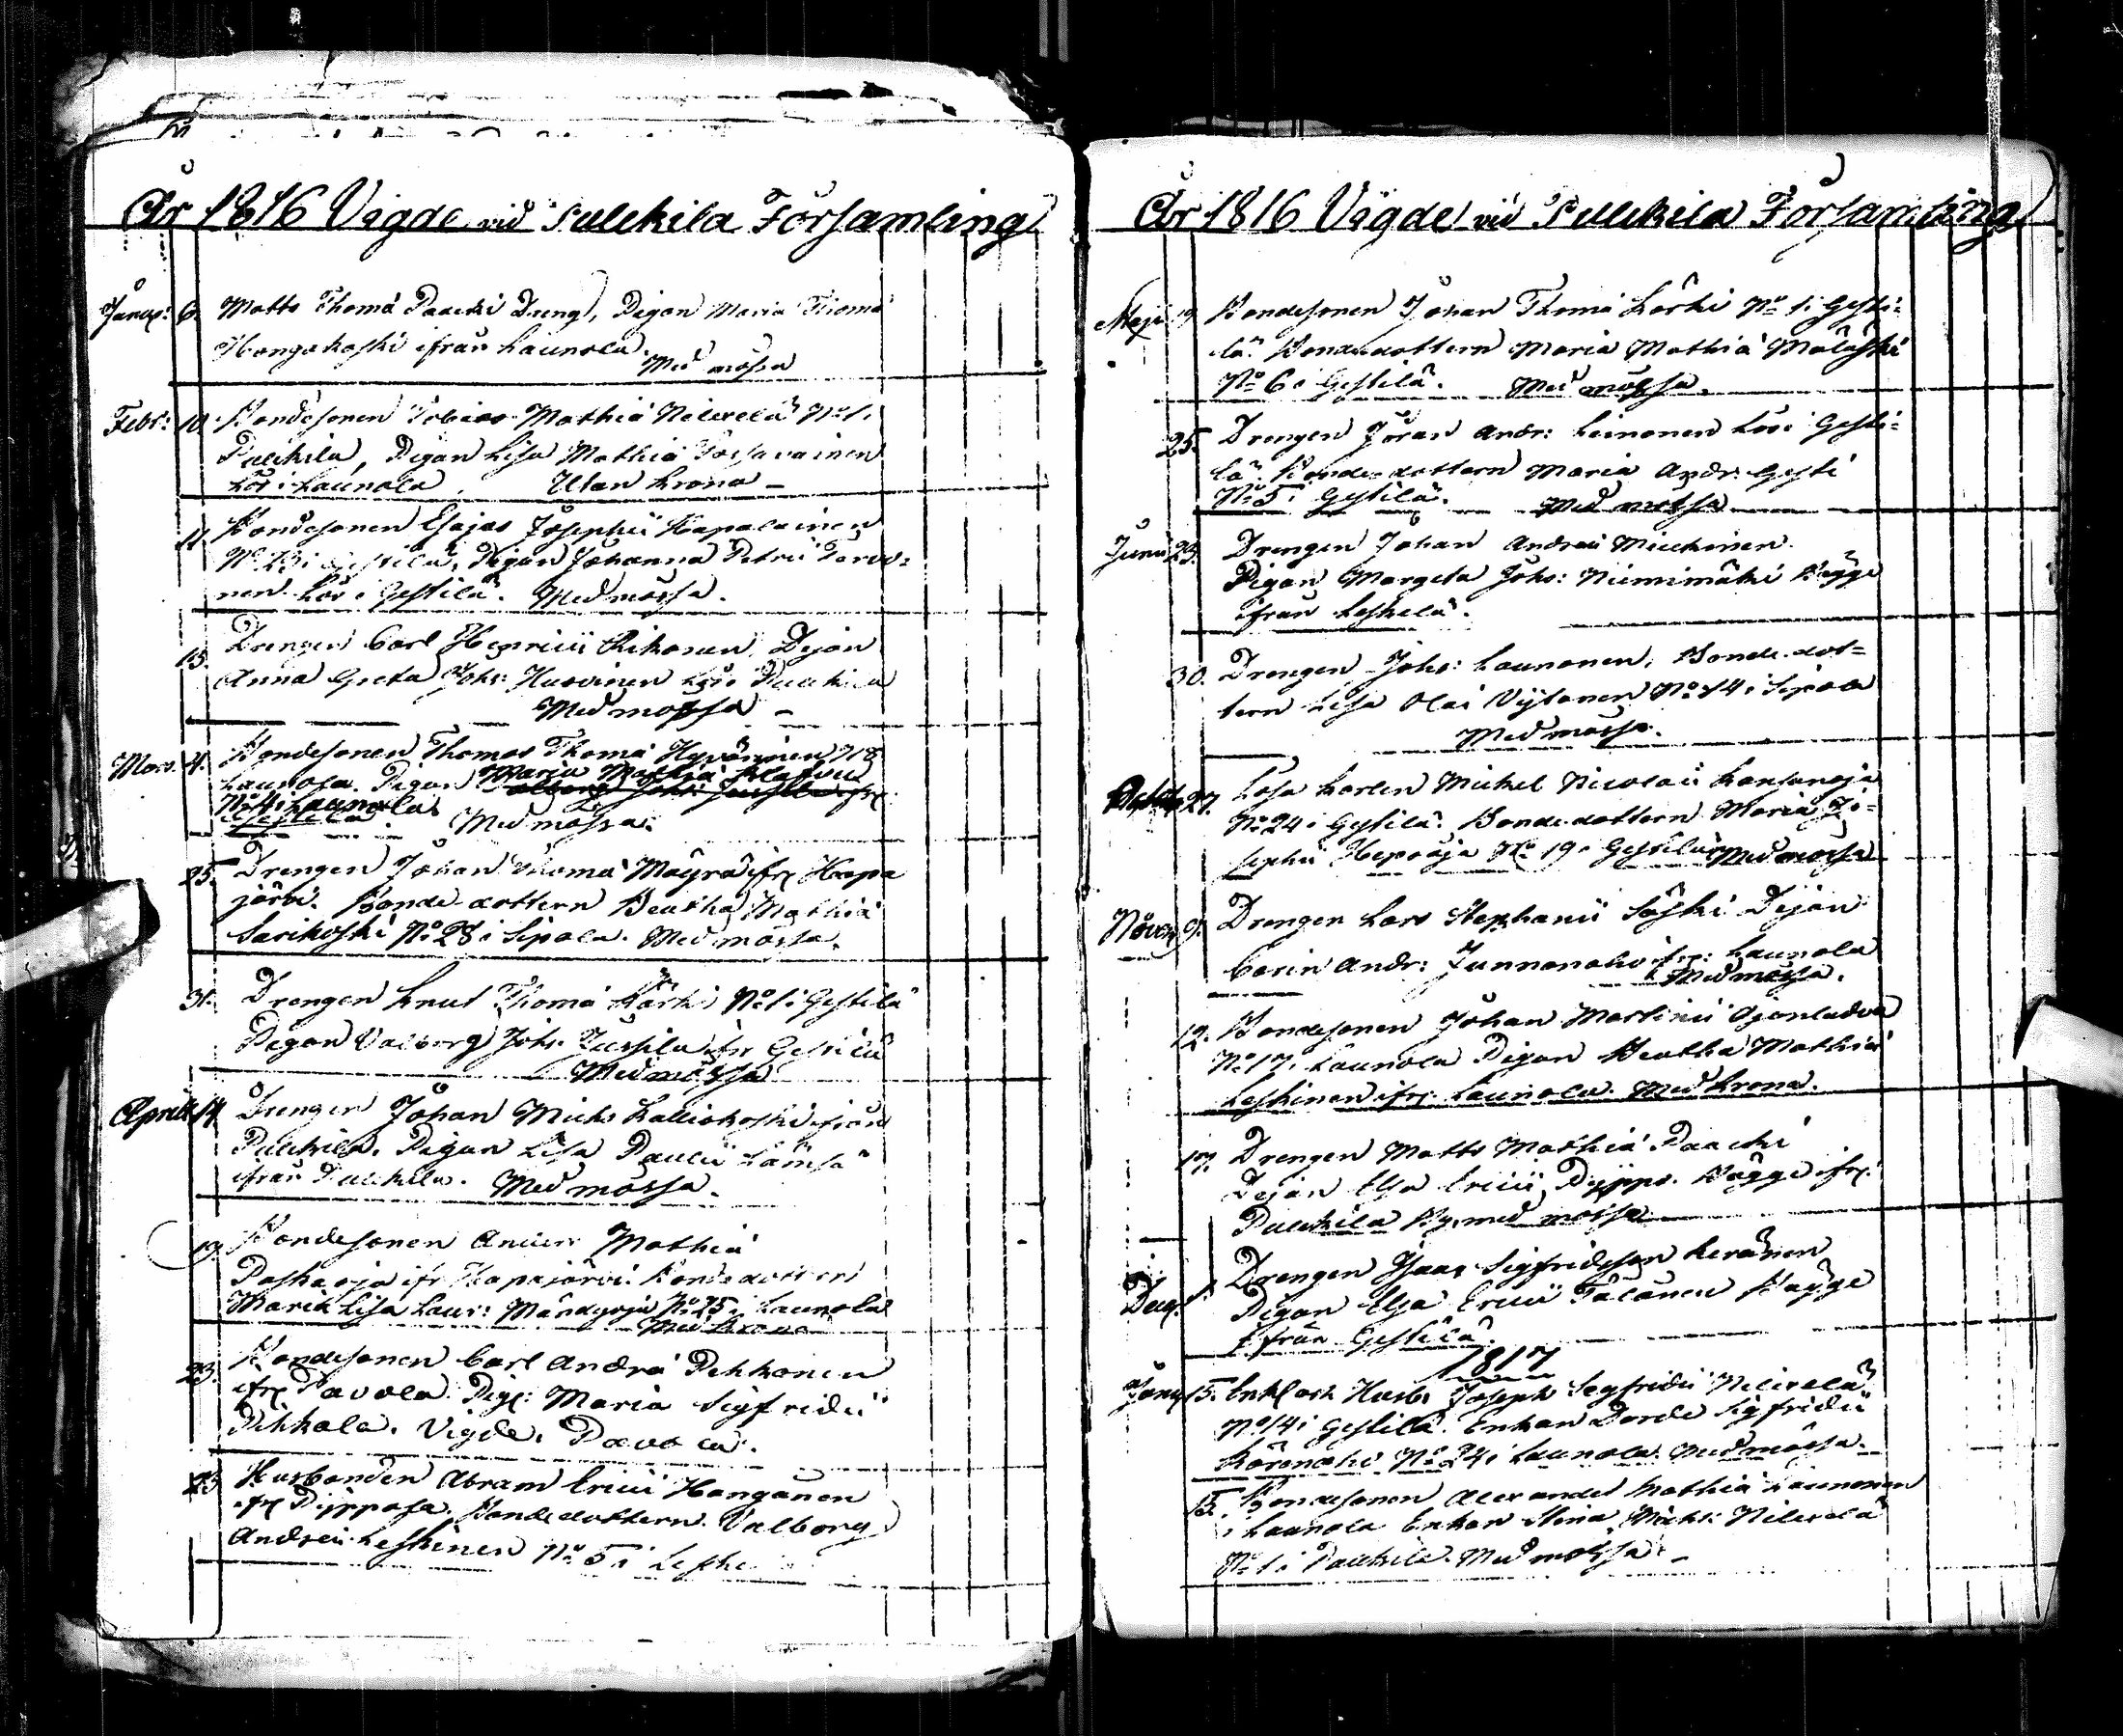 År 1816 Vigde vid Pulckila Församling
Januar: 6. Matts Thomæ Paacki Dreng, Pigan Maria Thomæ
Hongakoski ifrån Launola.
Med mössa
Febr: 10. Bondesonen Tobias Mathiæ Nilivelä No 1.
Pulckila, Pigan Lisa Mathiæ Tossavainen
hos i Launola. Utan krona -
11. Bondesonen Esajas Josephii Kapalainen
No 23 i Gestilä, Pigan Johanna Petri Tervo-
nen hos i Gestilä. Med mössa.
15. Drengen Carl Henricii Rikonen Pijan
Anna Greta Johs: Huovinen hos i Pulckila
Med mössa -
Mars. 4. Bondesonen Thomas Thomæ Hyvärinen No 8
Launola. Pigan Maria Mathiæ
No 4 i Launola
Med mössa.
25. Drengen Johan Thomæ Mäyrä ifr. Haapa
järvi. Bonde-dottern Beatha Mathiæ
Sarikoski No 28 i Sipola. Med mössa.
31. Drengen Knut Thomæ Kärki No 1 i Gestilä
Pigan Valborg Johs. Jussila ifr Gestilä
Med mössa
Aprill 14. Drengen Johan Michs Kalliokoski ifrån
Pulckila. Pigan Lisa Paulii Lämsä
ifrån Pulckila. Med mössa.
19. Bondesonen Anders Mathiæ
Paskaoja ifr Hapajärvi. Bondedottern
Maria Lisa Laur: Mändyoja No 25 i Launola
Med krona
23. Bondesonen Carl Andræ Pehkonen
ifr. Pavola. Pig: Maria Sigfridii
Pehkola. Vigde i Pavola.
23 Husbonden Abram Ericii Hangånen
ifr Pijppola. Bondedottern Valborg
Andreii Leskinen No 5 i Leske
År 1816 Vigde vid Pulckila Församling
Maji 19 Bondesonen Johan Thomæ Kärki No 1 i Gesti-
lä. Bondedottern Maria Mathiæ Mäläski
No 6 i Gestilä. Med mössa.
25. Drengen Jöran Andr: Leinonen hos i Gesti-
lä Bonde-dottern Maria Andr: Gesti
No 5 i Gestilä. Med mössa
Junii 23. Drengen Johan Andreii Mieckinen
Pigan Margeta Johs: Niemimäki Bägge
ifrån Leskelä.
30. Drengen Johs: Launonen, Bonde dot-
tern Lisa Olai Vijtanen No 14 i Sipola
Med mössa.
27. Lösa Karlen Michel Nicolaii Kansanoja
No 24 i Gestilä. Bondedottern Maria Jo-
sephii Hepoaja No 19 i Gestilä Med mössa
Novem 9. Drengen Lars Stephanii Säski Pijan
Carin Andr: Junnonaho ifr: Launola
Med mössa.
12. Bondesonen Johan Martinii Ojanladva
No 17 i Launola Pigan Beatha Mathiæ
Leskinen ifr. Launola. Med krona.
17. Drengen Matts Mathiæ Paacki
Pijan Elsa Ericii Pijppo. Bägge ifr.
Pulckila By, med mössa
Decr. 1. Drengen Isaac Sigfridsson Keränen
Pigan Elsa Ericii Tålånen Bägge
ifrån Gestilä.
1817
Janr 15. Enkl och Husb: Joseph Segfridii Nilivelä
No 14 i Gestilä. Enkan Dorde Sigfridii
Käränäki No 24 i Launola. Med mössa.
15. Bondesonen Alexander Mathiæ Launonen
i Launola Enkan Stina Michs: Nilivelä
No 1 i Pulckila. Med mössa. -